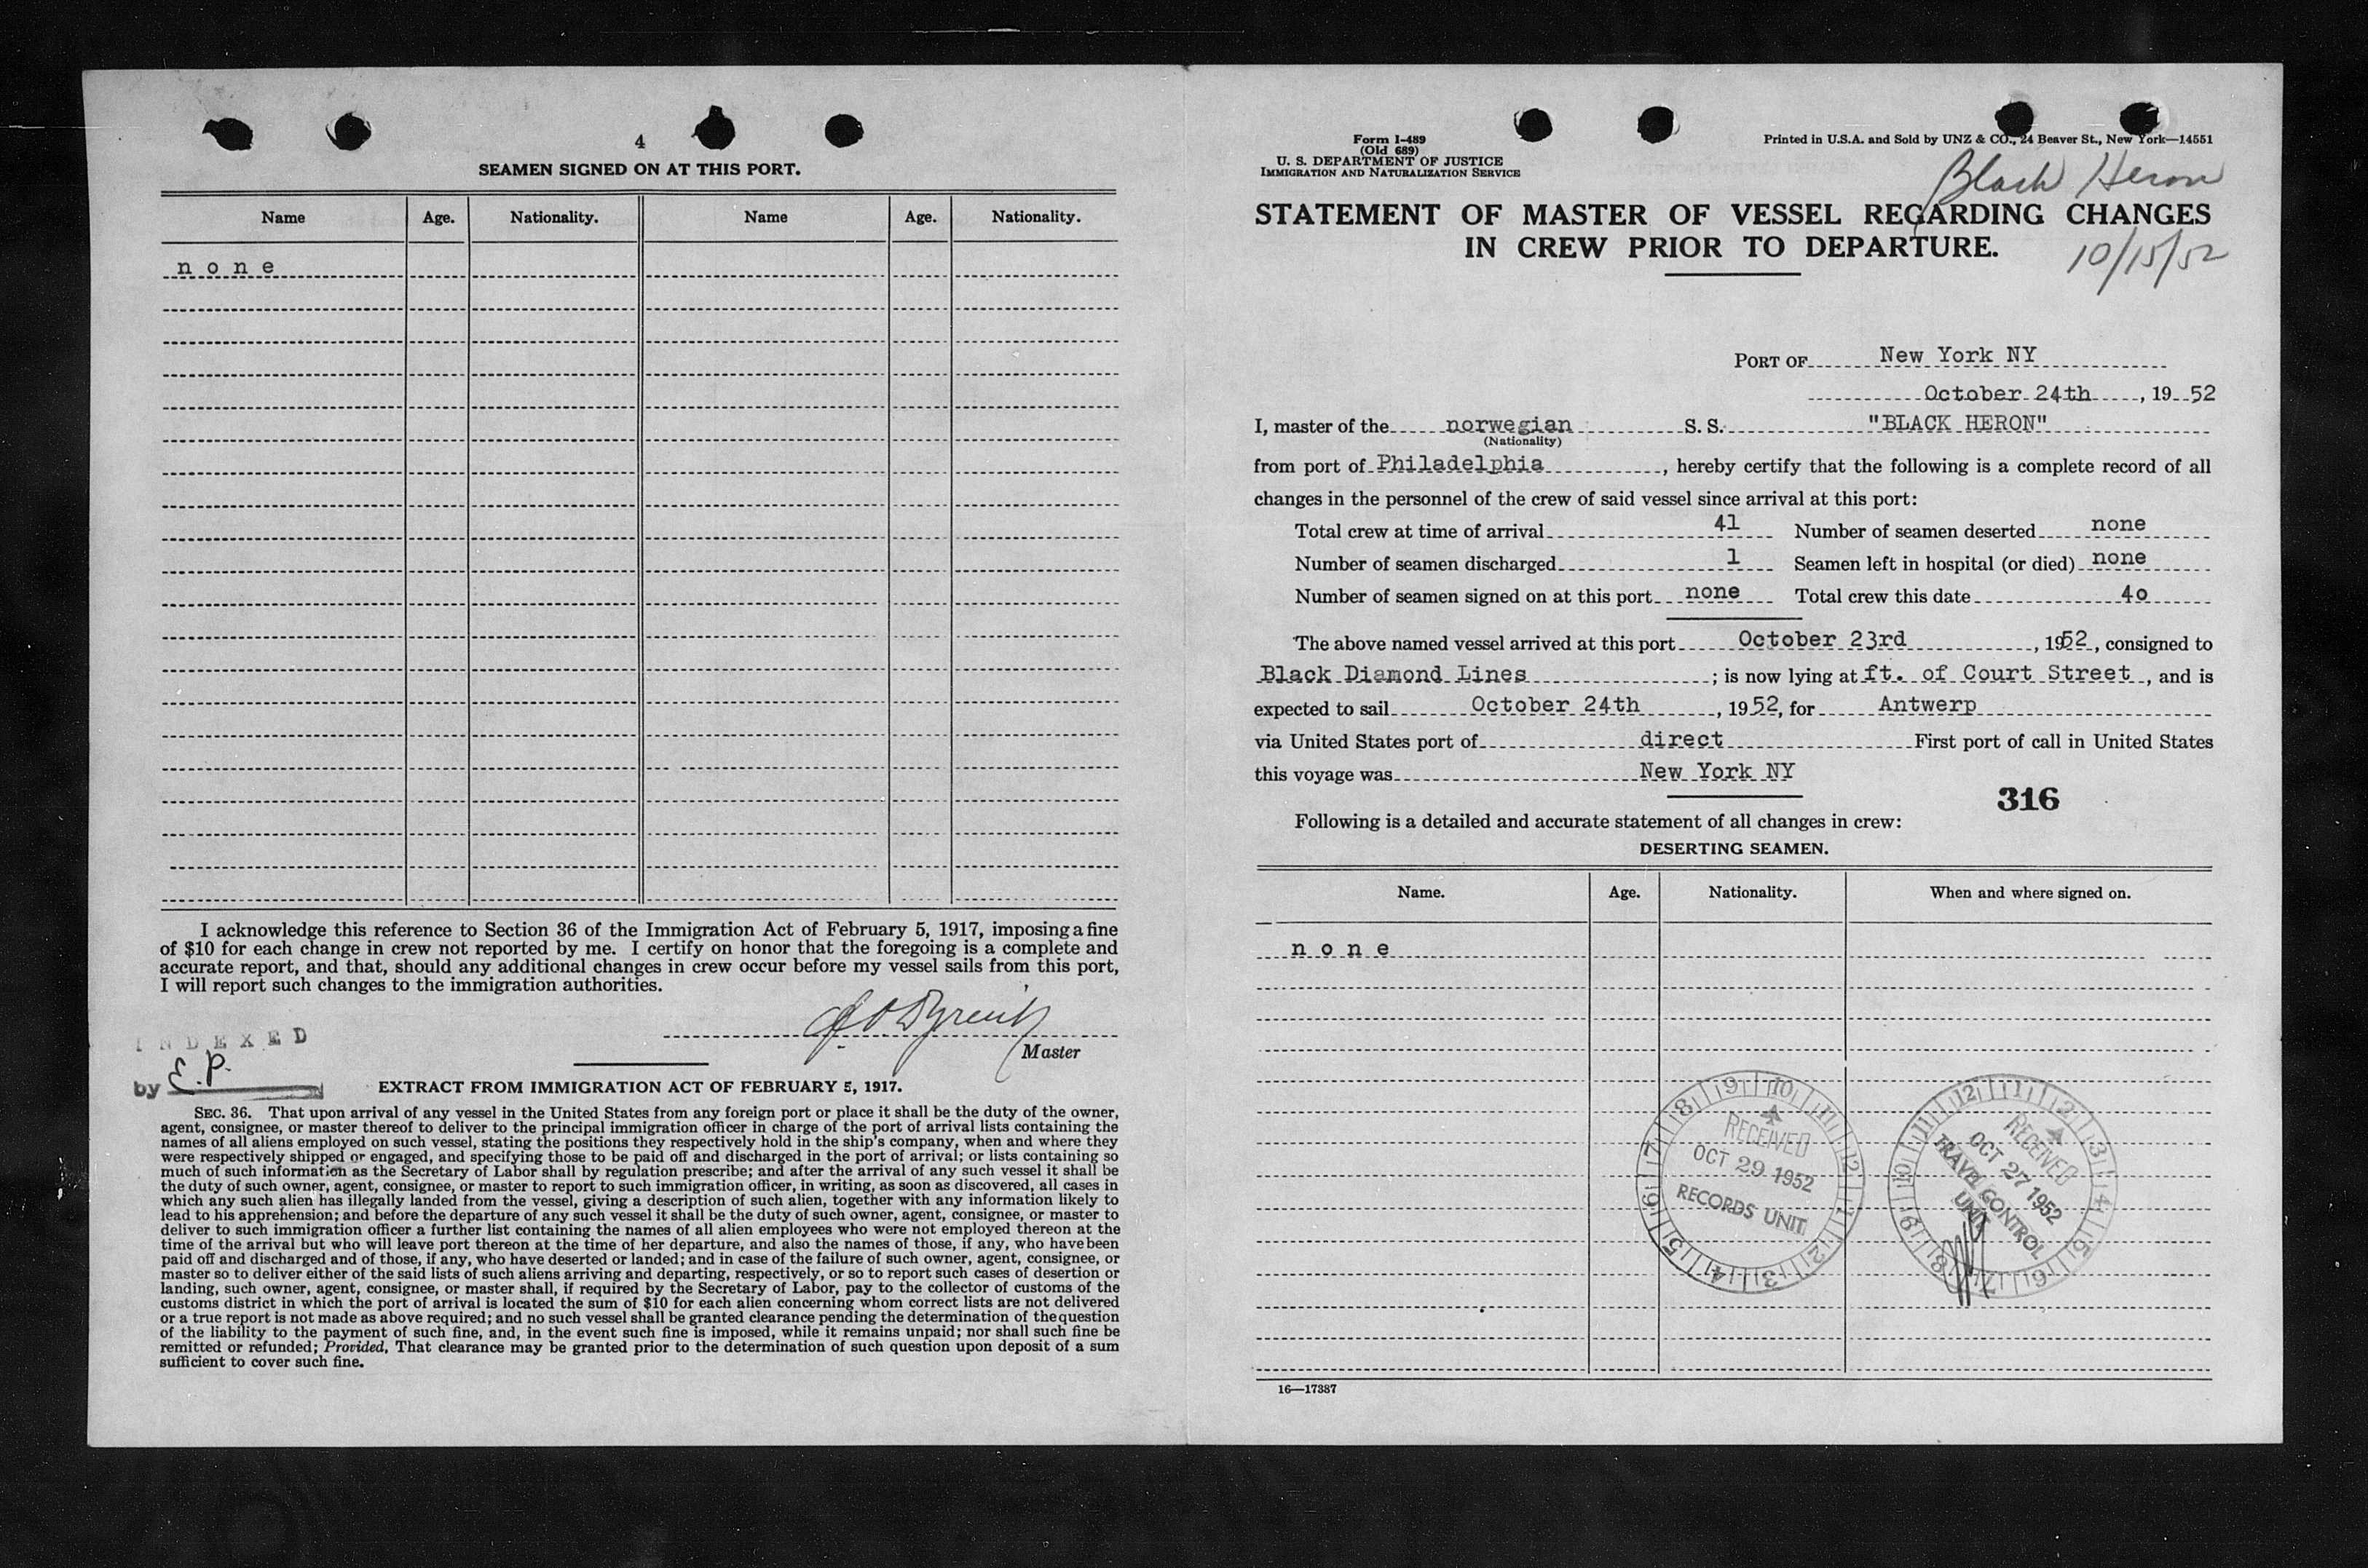 4
SEAMEN SIGNED ON AT THIS PORT.
Name Age. Nationality. Name Age. Nationality.
none
I acknowledge this reference to Section 36 of the Immigration Act of February 5, 1917, imposing a fine
of $10 for each change in crew not reported by me. I certify on honor that the foregoing is a complete and
accurate report, and that, should any additional changes in crew occur before my vessel sails from this port,
I will report such changes to the immigration authorities.
Master
INDEXED
by E.P.
EXTRACT FROM IMMIGRATION ACT OF FEBRUARY 5, 1917.
SEC. 36. That upon arrival of any vessel in the United States from any foreign port or place it shall be the duty of the owner,
agent, consignee, or master thereof to deliver to the principal immigration officer in charge of the port of arrival lists containing the
names of all aliens employed on such vessel, stating the positions they respectively hold in the ship's company, when and where they
were respectively shipped or engaged, and specifying those to be paid off and discharged in the port of arrival; or lists containing so
much of such information as the Secretary of Labor shall by regulation prescribe; and after the arrival of any such vessel it shall be
the duty of such owner, agent, consignee, or master to report to such immigration officer, in writing, as soon as discovered, all cases in
which any such alien has illegally landed from the vessel, giving a description of such alien, together with any information likely to
lead to his apprehension; and before the departure of any such vessel it shall be the duty of such owner, agent, consignee, or master to
deliver to such immigration officer a further list containing the names of all alien employees who were not employed thereon at the
time of the arrival but who will leave port thereon at the time of her departure, and also the names of those, if any, who have been
paid off and discharged and of those, if any, who have deserted or landed; and in case of the failure of such owner, agent, consignee, or
master so to deliver either of the said lists of such aliens arriving and departing, respectively, or so to report such cases of desertion or
landing, such owner, agent, consignee, or master shall, if required by the Secretary of Labor, pay to the collector of customs of the
customs district in which the port of arrival is located the sum of $10 for each alien concerning whom correct lists are not delivered
or a true report is not made as above required; and no such vessel shall be granted clearance pending the determination of the question
of the liability to the payment of such fine, and, in the event such fine is imposed, while it remains unpaid; nor shall such fine be
remitted or refunded; Provided, That clearance may be granted prior to the determination of such question upon deposit of a sum
sufficient to cover such fine.
Form I-489
(Old 689)
U. S. DEPARTMENT OF JUSTICE
IMMIGRATION AND NATURALIZATION SERVICE
Printed in U.S.A. and Sold by UNZ & CO., 24 Beaver St., New York—14551
Black Heron
STATEMENT OF MASTER OF VESSEL REGARDING CHANGES
IN CREW PRIOR TO DEPARTURE.
10/15/52
PORT OF New York NY
October 24th, 1952
I, master of the norwegian S. S. "BLACK HERON"
(Nationality)
from port of Philadelphia, hereby certify that the following is a complete record of all
changes in the personnel of the crew of said vessel since arrival at this port:
Total crew at time of arrival 41 Number of seamen deserted none
Number of seamen discharged 1 Seamen left in hospital (or died) none
Number of seamen signed on at this port none Total crew this date 4o
The above named vessel arrived at this port October 23rd, 1952, consigned to
Black Diamond Lines; is now lying at ft. of Court Street, and is
expected to sail October 24th, 1952, for Antwerp
via United States port of direct First port of call in United States
this voyage was New York NY
316
Following is a detailed and accurate statement of all changes in crew:
DESERTING SEAMEN.
Name. Age. Nationality. When and where signed on.
none
9 10 11 12 1 2 3 4 5 6 7 8
RECEIVED
OCT 29 1952
RECORDS UNIT
12 1 2 3 4 5 6 7 8 9 10 11
RECEIVED
OCT 27 1952
TRAVEL CONTROL
UNIT
16—17387